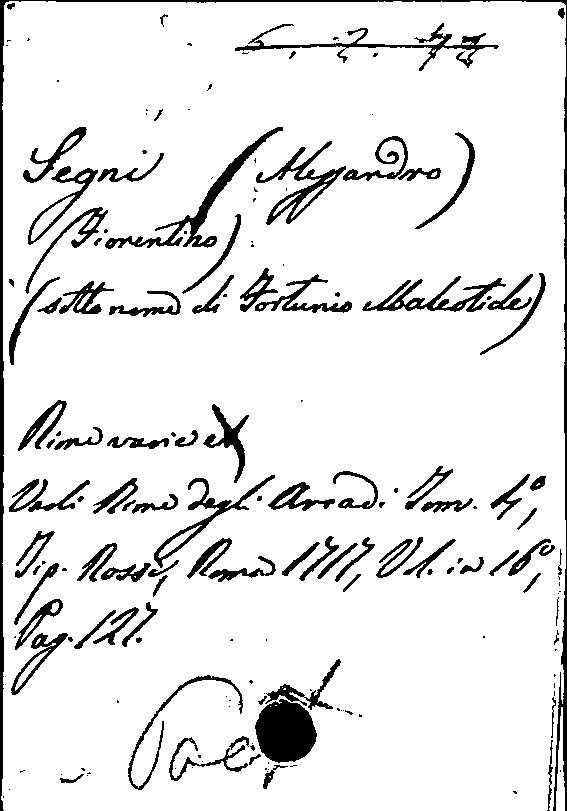 6. 2. 44
Segni (Alessandro)
(Fiorentino)
(sotto nome di Fortunio Maleotide)
Rime varie
Vedi Rime degli Arcadi Tom. 4°,
Tip. Rossi, Roma 1717, Vol. in 16°,
Pag. 127.